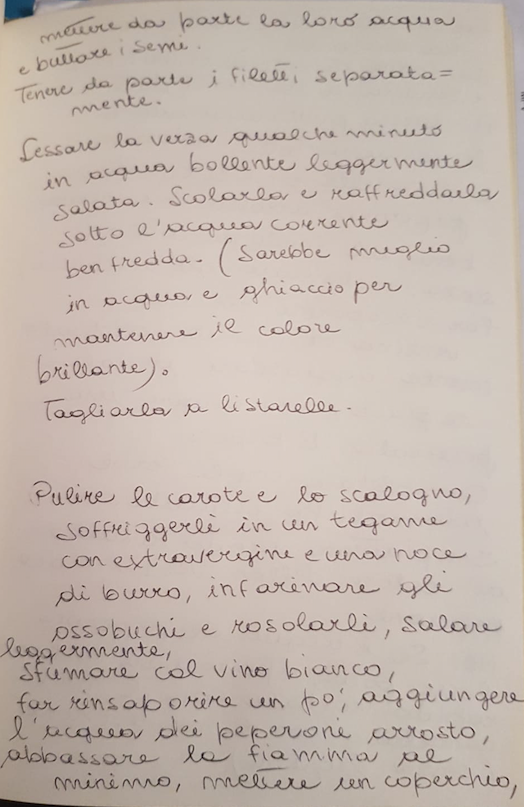 mettere da parte la loro acqua
e buttare i semi.
Tenere da parte i filetti separata=
mente.
Lessare la verza qualche minuto
in acqua bollente leggermente
salata. Scolarla e raffreddarla
sotto l'acqua corrente
ben fredda. (Sarebbe meglio
in acqua e ghiaccio per
mantenere il colore
brillante).
Tagliarla a listarelle.
Pulire le carote e lo scalogno,
soffriggerli in un tegame
con extravergine e una noce
di burro, infarinare gli
ossobuchi e rosolarli, salare
leggermente,
sfumare col vino bianco,
far rinsaporire un po', aggiungere
l'acqua dei peperoni arrosto,
abbassare la fiamma al
minimo, mettere un coperchio,